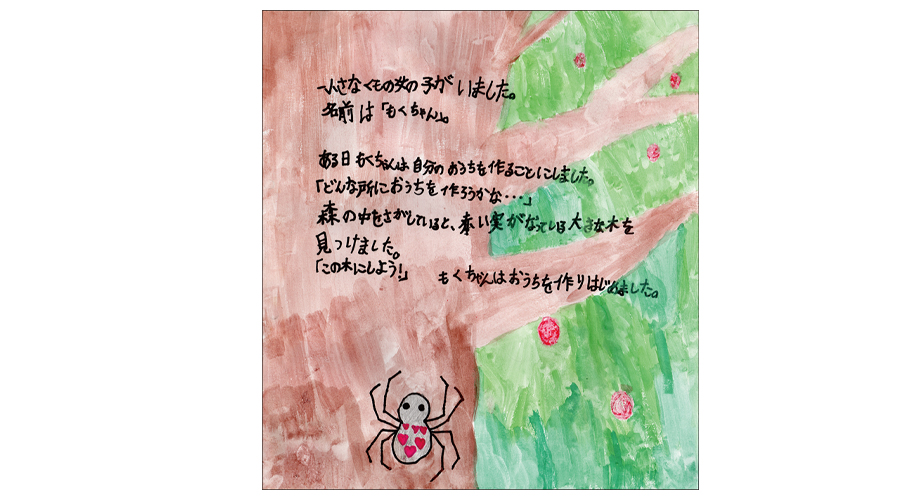 小さなくもの女の子がいました。
名前は「もくちゃん」。
ある日もくちゃんは自分のおうちを作ることにしました。
「どんな所におうちを作ろうかな・・・」
森の中をさがしていると、赤い実がなっている大きな木を
見つけました。
「この木にしよう!」
もくちゃんはおうちを作りはじめました。